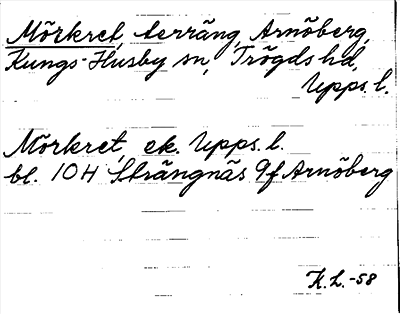 Mörkret, terräng, Arnöberg,
Kungs-Husby sn, Trögds hd,
Upps. l.
Mörkret, ek. Upps. l.
bl. 104 Strängnäs 9f Arnöberg
K.L.-58